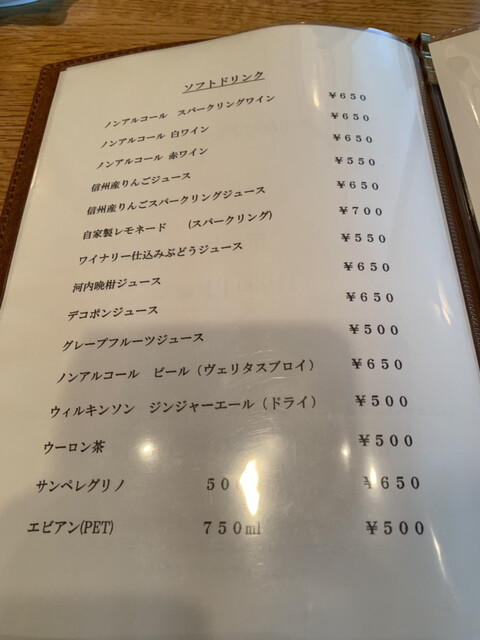 ソフトドリンク
ノンアルコール　スパークリングワイン ￥650
ノンアルコール 白ワイン ￥650
ノンアルコール 赤ワイン ￥650
信州産りんごジュース ￥550
信州産りんごスパークリングジュース ￥650
自家製レモネード　（スパークリング） ￥700
ワイナリー仕込みぶどうジュース ￥550
河内晩柑ジュース ￥650
デコポンジュース ￥650
グレープフルーツジュース ￥500
ノンアルコール　ビール（ヴェリタスブロイ） ￥650
ウィルキンソン　ジンジャーエール（ドライ） ￥500
ウーロン茶 ￥500
サンペレグリノ 50 ￥650
エビアン(PET) 750ml ￥500